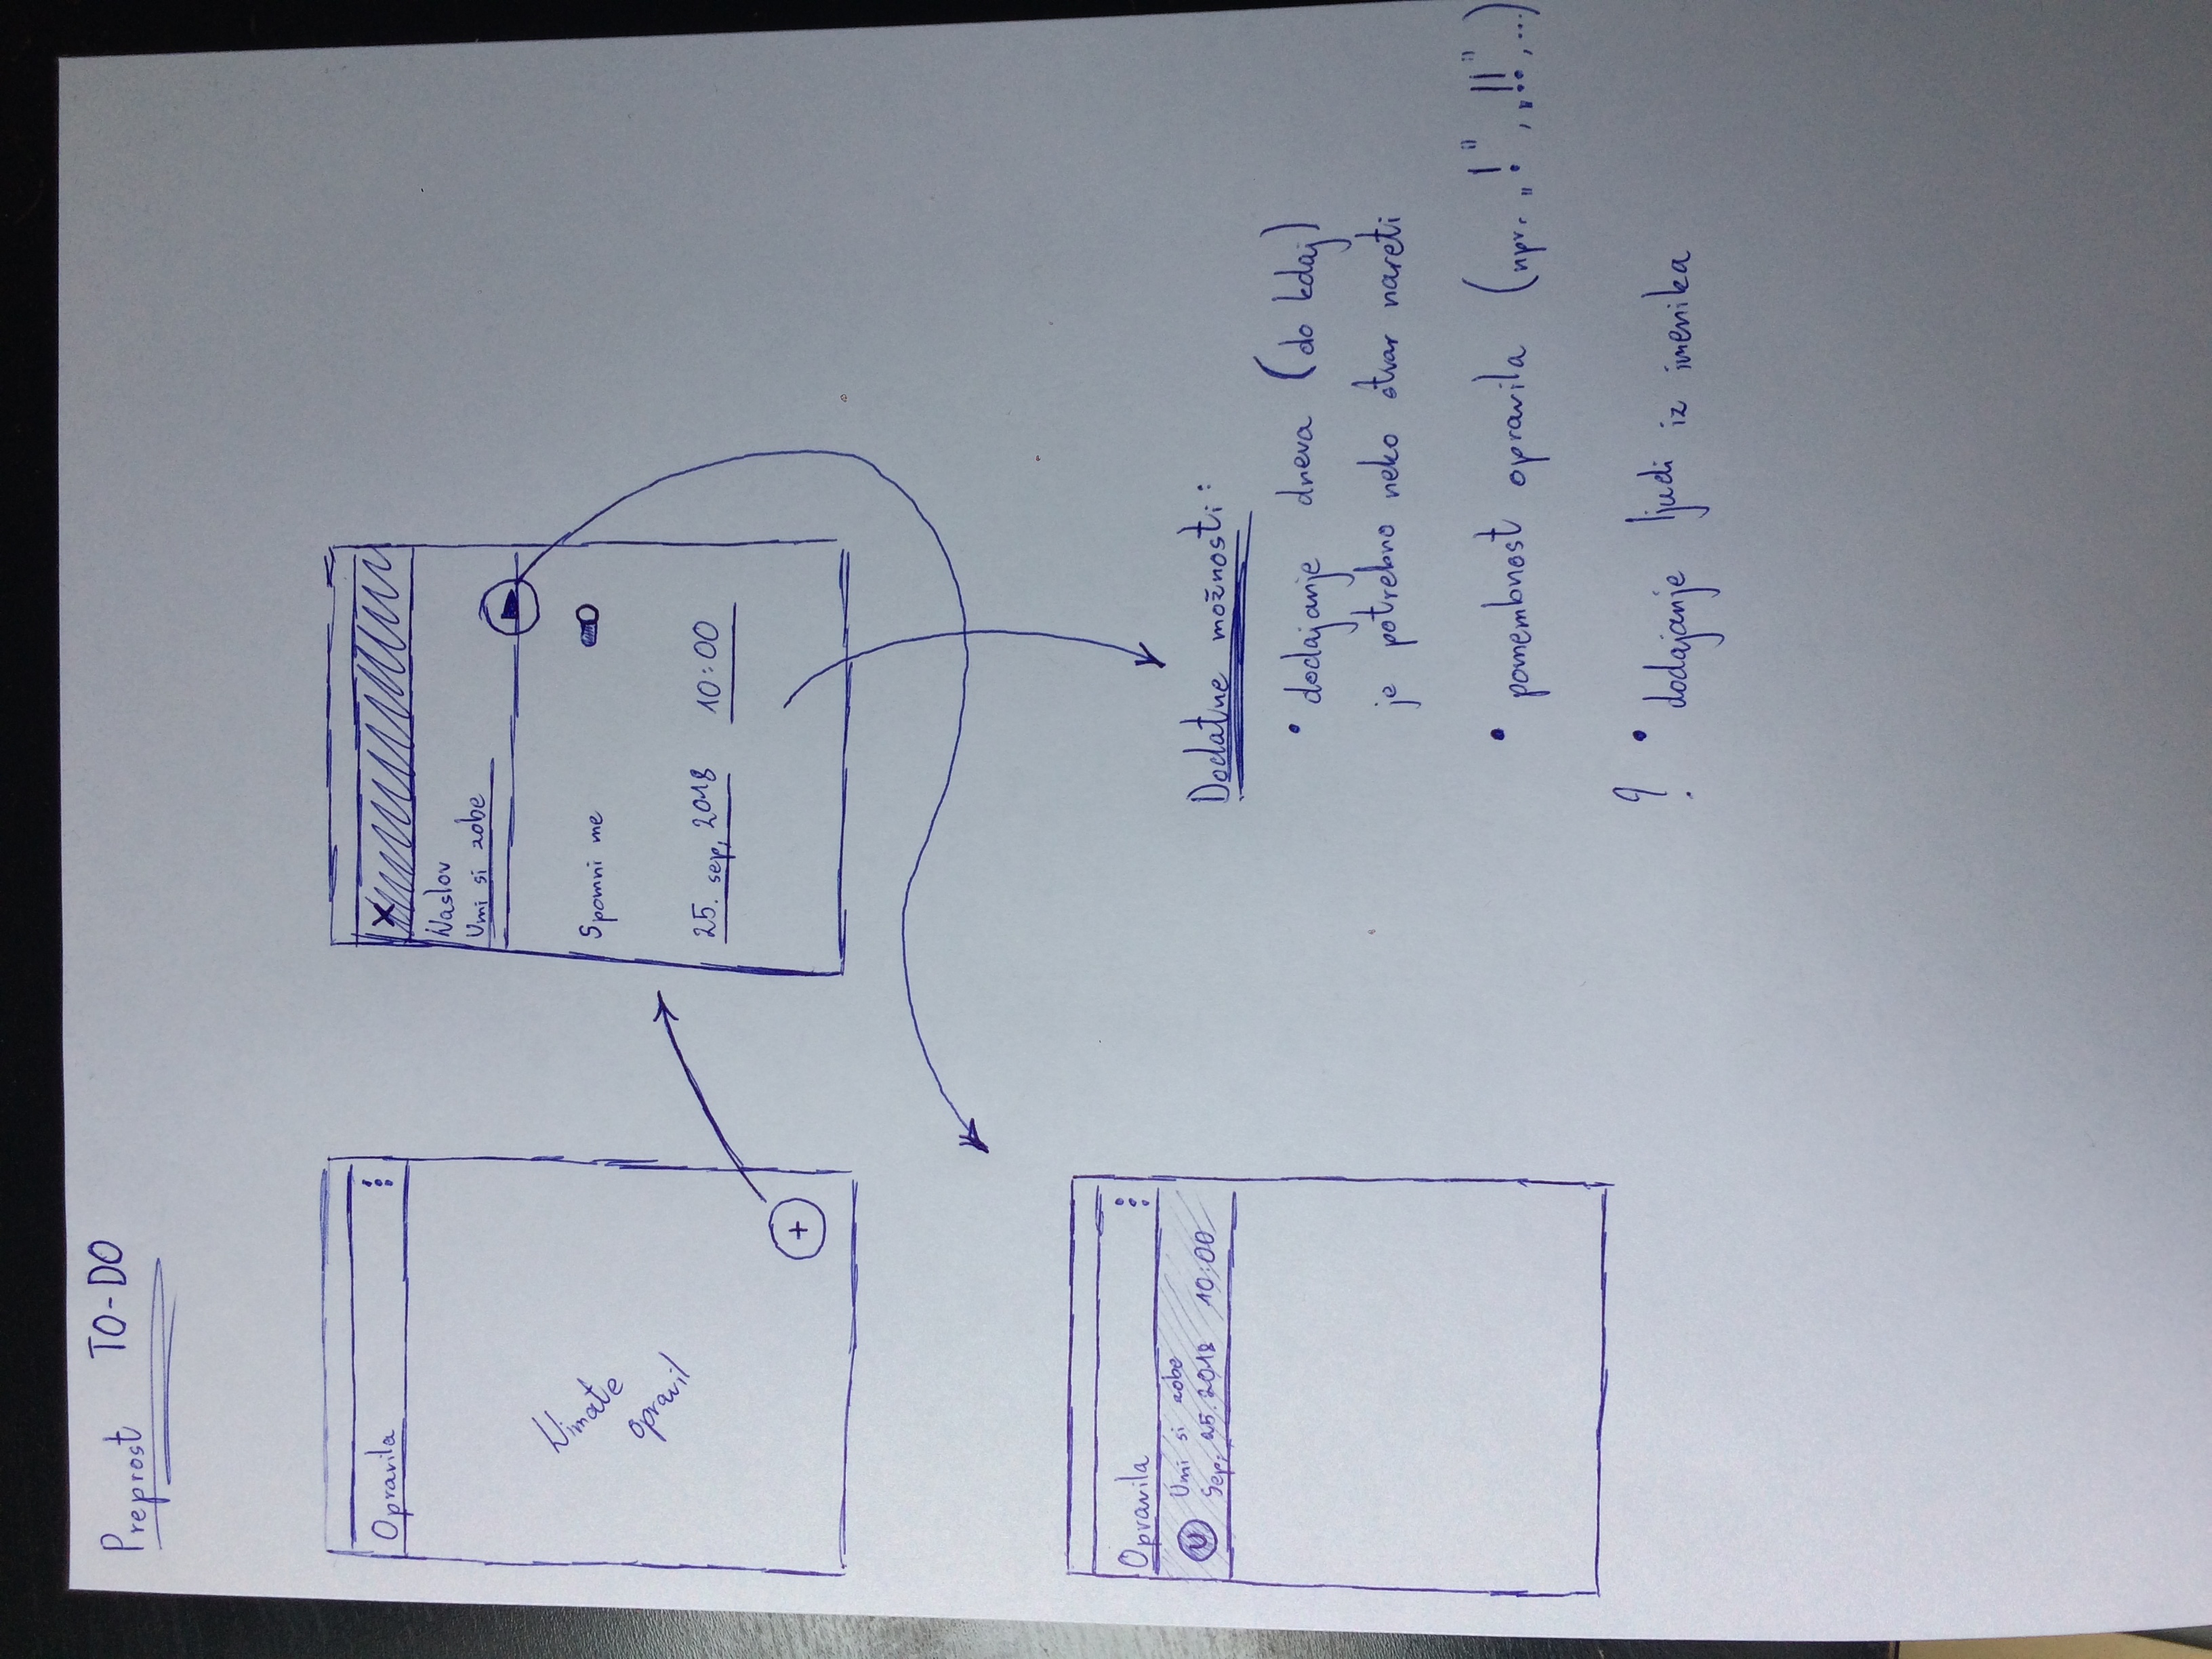 Preprost TO-DO
Opravila
Nimate
opravil
+
X
Naslov
Umi si zobe
Spomni me
25. sep, 2018 10:00
Opravila
U
Umi si zobe
Sep, 25.2018 10:00
Dodatne možnosti:
• dodajanje dneva (do kdaj)
je potrebno neko stvar nareti
• pomembnost opravila (npr. „!", „!!", ...)
? • dodajanje ljudi iz imenika